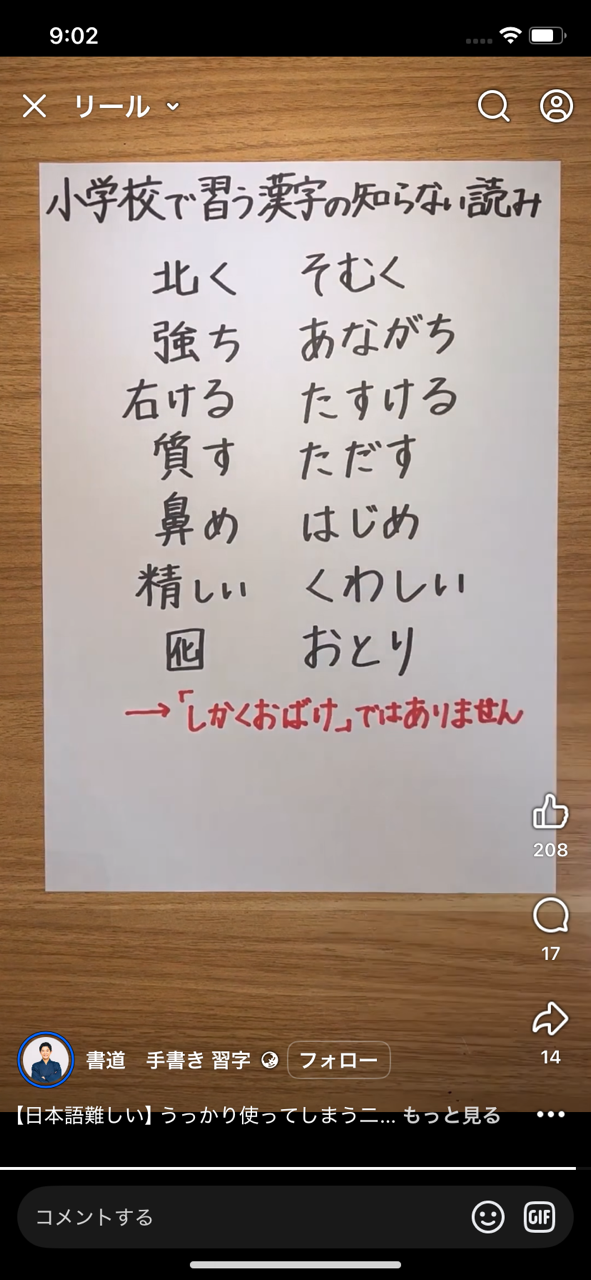 9:02
リール
小学校で習う漢字の知らない読み
北く そむく
強ち あながち
右ける たすける
質す ただす
鼻め はじめ
精しい くわしい
囮 おとり
→「しかくおばけ」ではありません
208
17
14
書道 手書き 習字 フォロー
【日本語難しい】うっかり使ってしまう二... もっと見る
コメントする
GIF